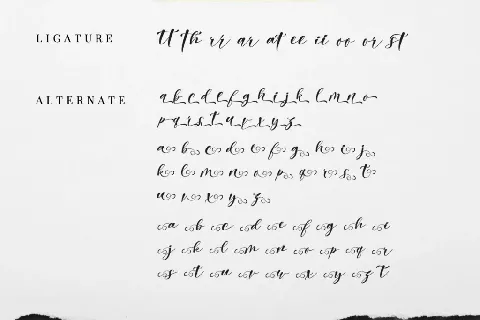 LIGATURE tt th rr ar at ee ii oo or st
ALTERNATE a b c d e f g h i j k l m n o
p q r s t u v x y z
a b c d e f g h i j
k l m n o p q r s t
u v x y z
a b c d e f g h i
j k l m n o p q r
s t u v w x y z t